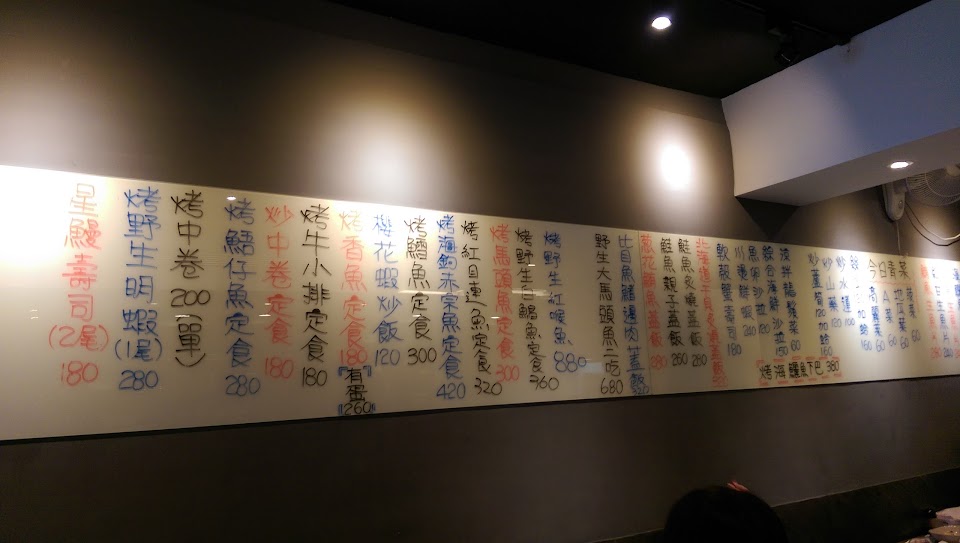 今日青菜
地瓜葉 60
A菜 60
高麗菜 60
炒水蓮 120
炒山藥 120 加蛤 160
炒蘆筍 120 加蛤 160
烤海鱺魚下巴 380
涼拌龍鬚菜 60
綜合海鮮沙拉 150
魚卵沙拉
川燙蝦
軟殼蟹壽司 180
鮭魚炙燒蓋飯 260
鮭魚親子蓋飯 260
蔥花鮪魚蓋飯
比目魚鰭邊肉蓋飯
野生大馬頭魚二吃 680
烤野生紅喉魚 880
烤野生白鯧魚定食 360
烤馬頭魚定食 300
烤紅目連魚定食 320
烤海釣赤宗魚定食 420
烤鱈魚定食 300
櫻花蝦炒飯 120
烤香魚定食 180
『有蛋』
『260』
烤牛小排定食 180
炒中卷定食 180
烤鱈仔魚定食 280
烤中卷 200(單)
烤野生明蝦(1尾) 280
星鰻壽司(2尾) 180